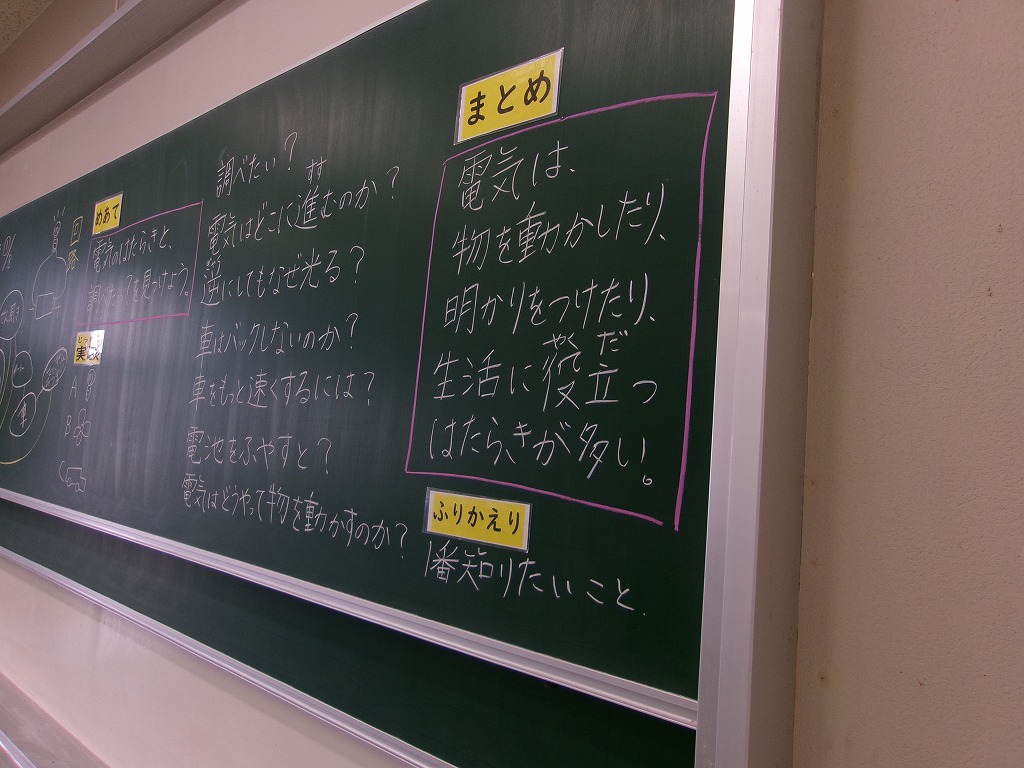 めあて
電気のはたらきと、
実
A
B
調べたい?
すす
電気はどこに進むのか?
逆にしてもなぜ光る?
車はバックしないのか?
車をもっと速くするには?
電池をふやすと?
電気はどうやって物を動かすのか?
まとめ
電気は、
物を動かしたり、
明かりをつけたり、
やく だ
生活に役立つ
はたらきが多い。
ふりかえり
1番知りたいこと.